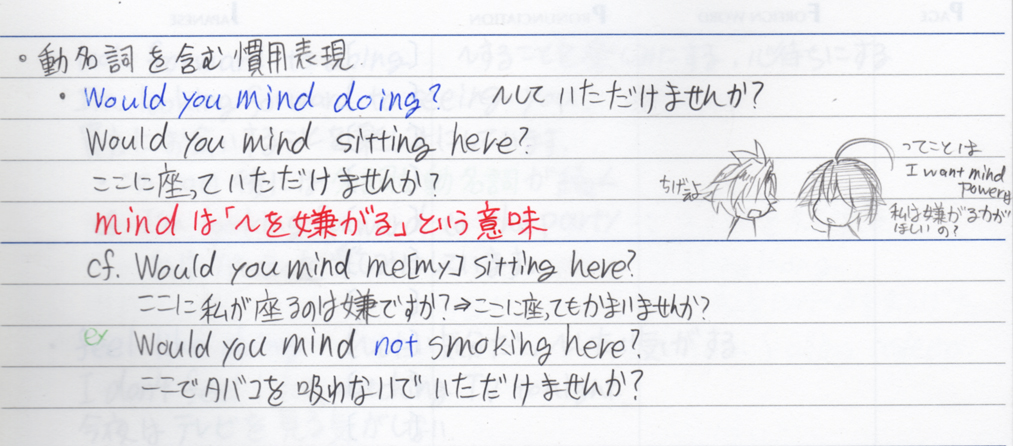 。動名詞を含む慣用表現.
・Would you mind doing? ～していただけませんか?
Would you mind sitting here?
ここに座っていただけませんか?
mindは「～を嫌がる」という意味
cf. Would you mind me[my] sitting here?
ここに私が座るのは嫌ですか?→ここに座ってもかまいませんか?
ex Would you mind not smoking here?
ここでタバコを吸わないでいただけませんか?
ちげぇよ
ってことは
I want mind
powerは
私は嫌がる力が
ほしいの?